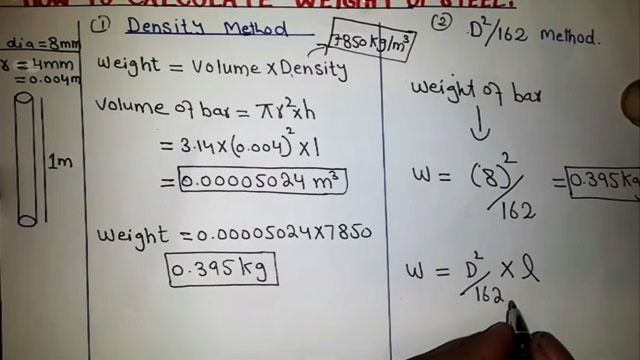 HOW TO CALCULATE WEIGHT OF STEEL?
dia=8mm
r = 4mm
= 0.004m
1m
① Density Method
7850kg/m³
Weight = Volume × Density
Volume of bar = πr²×h
= 3.14×(0.004)²×1
= 0.00005024 m³
Weight = 0.00005024×7850
0.395kg
② D²/162 method.
Weight of bar
W = (8)²/162 = 0.395kg
W = D²/162 × l